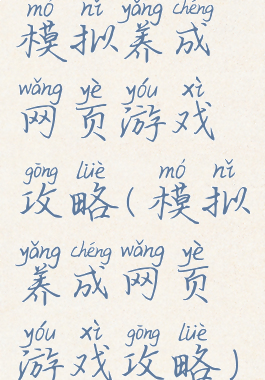 mó nǐ yǎng chéng
模拟养成
wǎng yè yóu xì
网页游戏
gōng lüè mó nǐ
攻略(模拟
yǎng chéng wǎng yè
养成网页
yóu xì gōng lüè
游戏攻略)